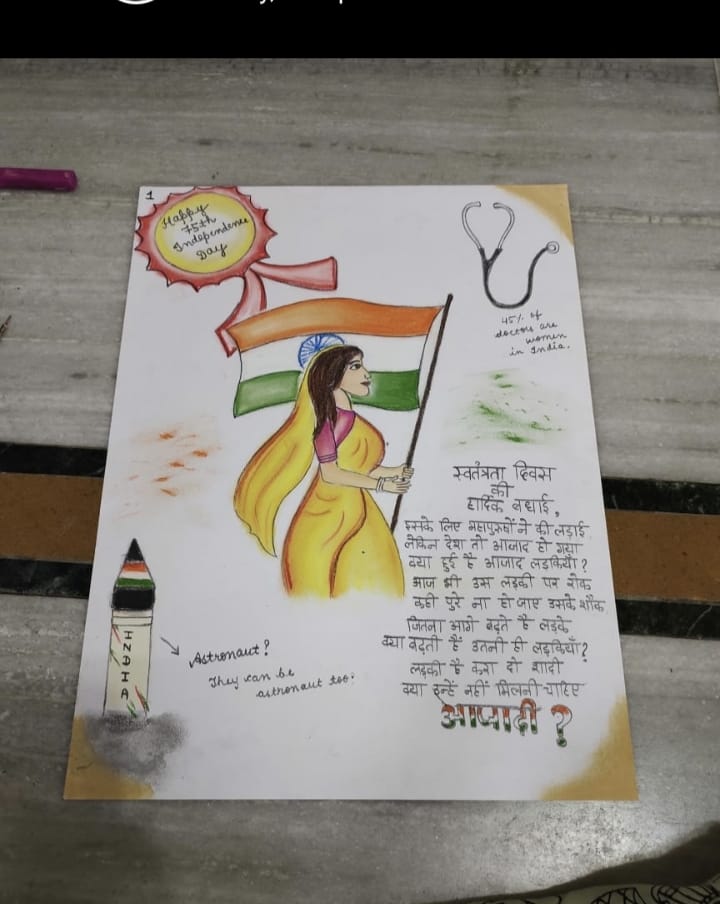 1
Happy
75th
Independence
Day
45% of
doctors are
women
in India.
स्वतंत्रता दिवस
की
हार्दिक बधाई,
इसके लिए महापुरुषों ने की लड़ाई
लेकिन देश तो आजाद हो गया
क्या हुई है आजाद लड़कियाँ?
आज भी उस लड़की पर रोक
कही पुरे ना हो जाए उसके शौक
जितना आगे बढ़ते है लड़के
क्या बढ़ती हैं उतनी ही लड़कियाँ?
लड़की है करा दो शादी
क्या इन्हें नहीं मिलनी चाहिए
आजादी ?
INDIA
Astronaut?
They can be
astronaut too.